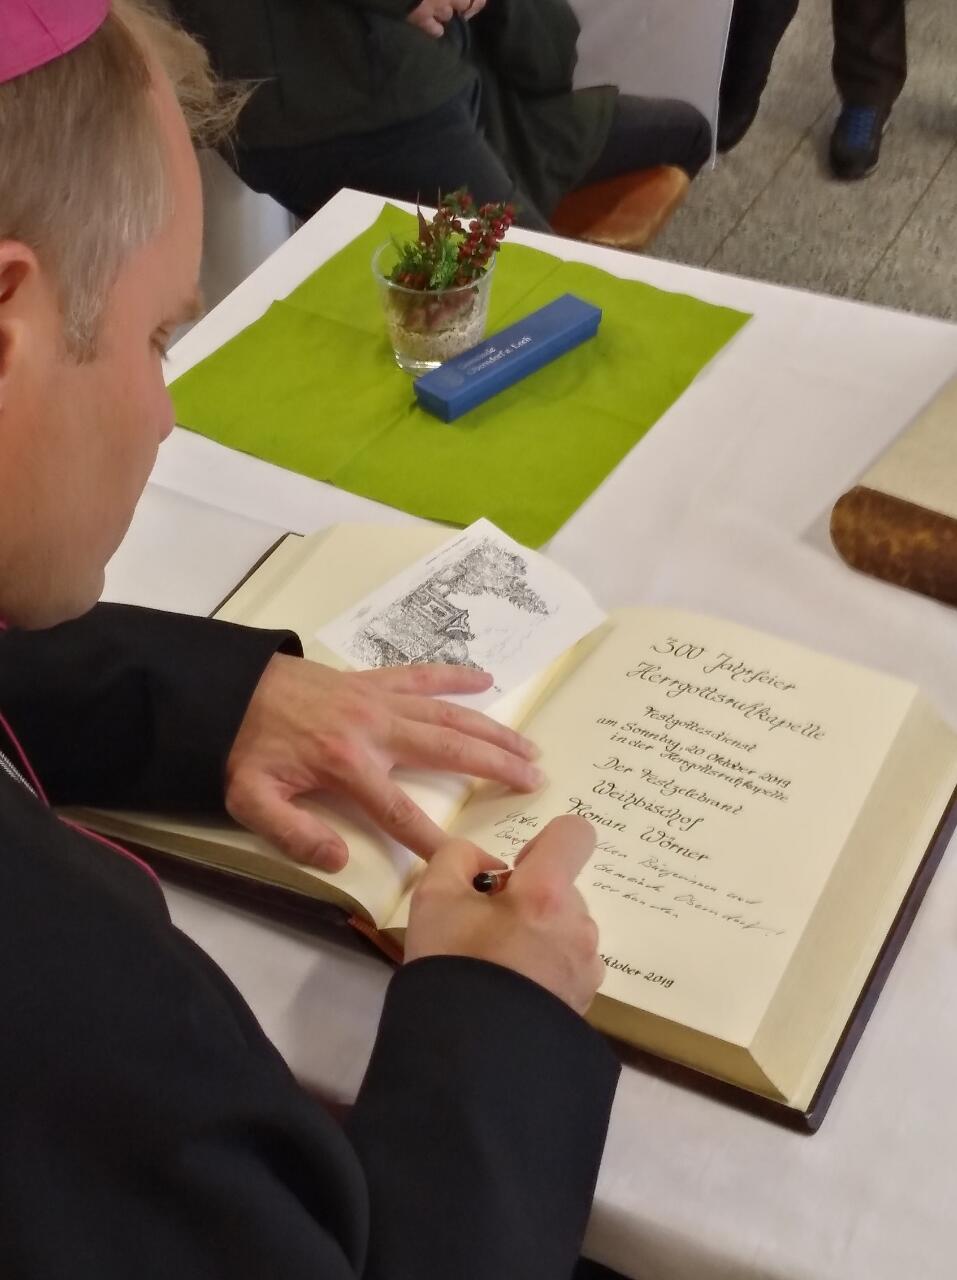 Gemeinde
Oberndorf a. Lech
300 Jahrfeier
Herrgottsruhkapelle
Festgottesdienst
am Sonntag, 20 Oktober 2019
in der Herrgottsruhkapelle
Der Festzelebrant
Weihbischof
Florian Wörner
Bürgerinnen und
Gemeinde Oberndorf!
verbunden
Oktober 2019